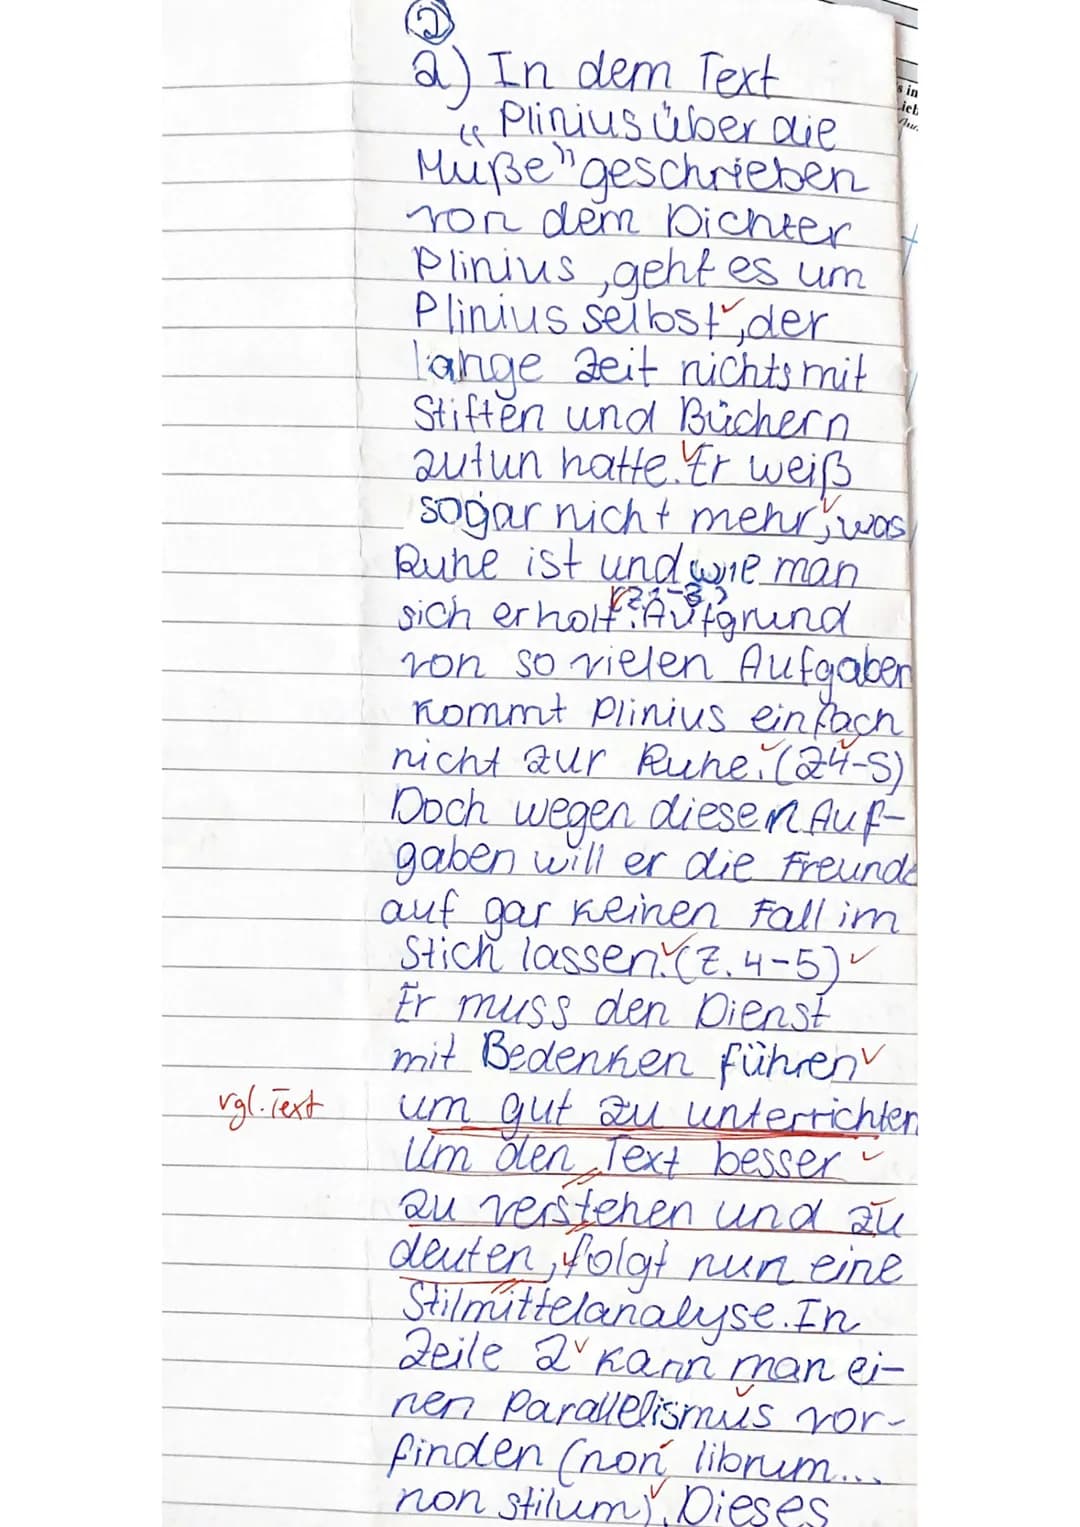 ②
a) In dem Text
„Plinius über die
Muße" geschrieben
von dem Dichter
Plinius, geht es um
Plinius selbst, der
lange Zeit nichts mit
Stiften und Büchern
zutun hatte. Er weiß
sogar nicht mehr, was
Ruhe ist und wie man
(Z 1-3)
sich erholt. Aufgrund
von so vielen Aufgaben
kommt Plinius einfach
nicht zur Ruhe. (Z4-5)
Doch wegen diesen Auf-
gaben will er die Freunde
auf gar keinen Fall im
Stich lassen. (Z. 4-5)
Er muss den Dienst
mit Bedenken führen
vgl. Text um gut zu unterrichten
Um den Text besser
zu verstehen und zu
deuten, folgt nun eine
Stilmittelanalyse. In
Zeile 2 kann man ei-
nen Parallelismus vor-
finden (non librum...
non stilum). Dieses
s in